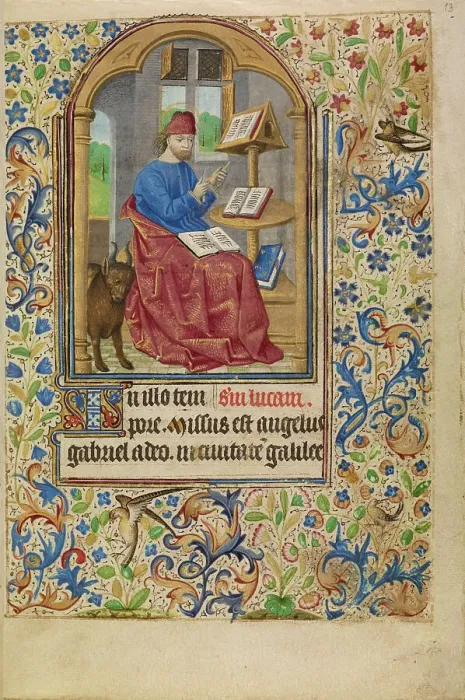 13
In illo tem Sm lucam.
pore. Missus est angelus
gabriel a deo. in ciuitatē galilee